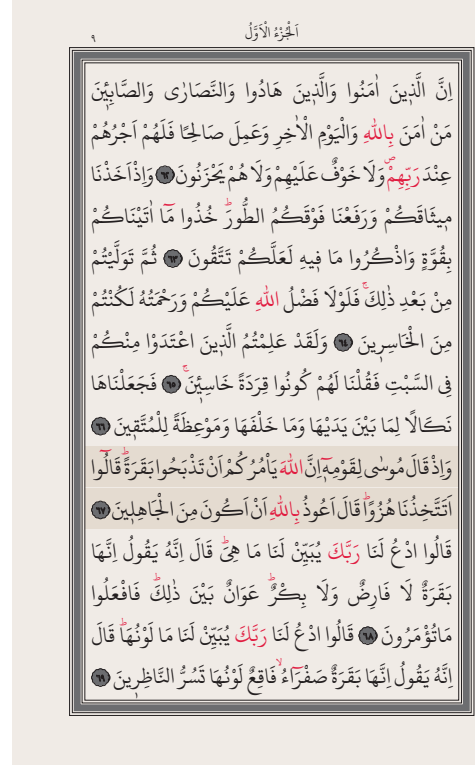 اَلْجُزْءُ الْاَوَّلُ
٩
اِنَّ الَّذٖينَ اٰمَنُوا وَالَّذٖينَ هَادُوا وَالنَّصَارٰى وَالصَّابِـٖٔينَ
مَنْ اٰمَنَ بِاللّٰهِ وَالْيَوْمِ الْاٰخِرِ وَعَمِلَ صَالِحًا فَلَهُمْ اَجْرُهُمْ
عِنْدَ رَبِّهِمْۖ وَلَا خَوْفٌ عَلَيْهِمْ وَلَا هُمْ يَحْزَنُونَ ﴿٦٢﴾ وَاِذْ اَخَذْنَا
مٖيثَاقَكُمْ وَرَفَعْنَا فَوْقَكُمُ الطُّورَؕ خُذُوا مَٓا اٰتَيْنَاكُمْ
بِقُوَّةٍ وَاذْكُرُوا مَا فٖيهِ لَعَلَّكُمْ تَتَّقُونَ ﴿٦٣﴾ ثُمَّ تَوَلَّيْتُمْ
مِنْ بَعْدِ ذٰلِكَۚ فَلَوْلَا فَضْلُ اللّٰهِ عَلَيْكُمْ وَرَحْمَتُهُ لَكُنْتُمْ
مِنَ الْخَاسِرٖينَ ﴿٦٤﴾ وَلَقَدْ عَلِمْتُمُ الَّذٖينَ اعْتَدَوْا مِنْكُمْ
فِى السَّبْتِ فَقُلْنَا لَهُمْ كُونُوا قِرَدَةً خَاسِـٖٔينَۚ ﴿٦٥﴾ فَجَعَلْنَاهَا
نَكَالًا لِمَا بَيْنَ يَدَيْهَا وَمَا خَلْفَهَا وَمَوْعِظَةً لِلْمُتَّقٖينَ ﴿٦٦﴾
وَاِذْ قَالَ مُوسٰى لِقَوْمِهٖٓ اِنَّ اللّٰهَ يَاْمُرُكُمْ اَنْ تَذْبَحُوا بَقَرَةًؕ قَالُٓوا
اَتَتَّخِذُنَا هُزُوًاؕ قَالَ اَعُوذُ بِاللّٰهِ اَنْ اَكُونَ مِنَ الْجَاهِلٖينَ ﴿٦٧﴾
قَالُوا ادْعُ لَنَا رَبَّكَ يُبَيِّنْ لَنَا مَا هِىَؕ قَالَ اِنَّهُ يَقُولُ اِنَّهَا
بَقَرَةٌ لَا فَارِضٌ وَلَا بِكْرٌؕ عَوَانٌ بَيْنَ ذٰلِكَؕ فَافْعَلُوا
مَا تُؤْمَرُونَ ﴿٦٨﴾ قَالُوا ادْعُ لَنَا رَبَّكَ يُبَيِّنْ لَنَا مَا لَوْنُهَاؕ قَالَ
اِنَّهُ يَقُولُ اِنَّهَا بَقَرَةٌ صَفْرَٓاءُۙ فَاقِعٌ لَوْنُهَا تَسُرُّ النَّاظِرٖينَ ﴿٦٩﴾